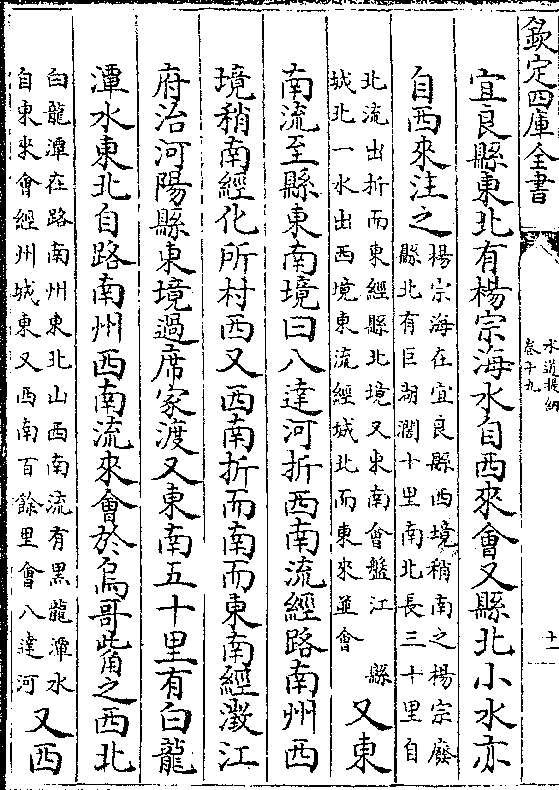 欽定四庫全書
水道提綱
卷十九
十一
宜良縣東北有楊宗海水自西來會又縣北小水亦
自西來注之
楊宗海在宜良縣西境稍南之楊宗廢
縣北有巨湖濶十里南北長三十里自
北流出折而東經縣北境又東南會盤江 縣
城北一水出西境東流經城北而東來並會
又東
南流至縣東南境曰八達河折西南流經路南州西
境稍南經化所村西又西南折而南而東南經澂江
府治河陽縣東境過席家渡又東南五十里有白龍
潭水東北自路南州西南流來會於烏哥嘴之西北
白龍潭在路南州東北山西南流有黑龍潭水
自東來會經州城東又西南百餘里會八達河
又西